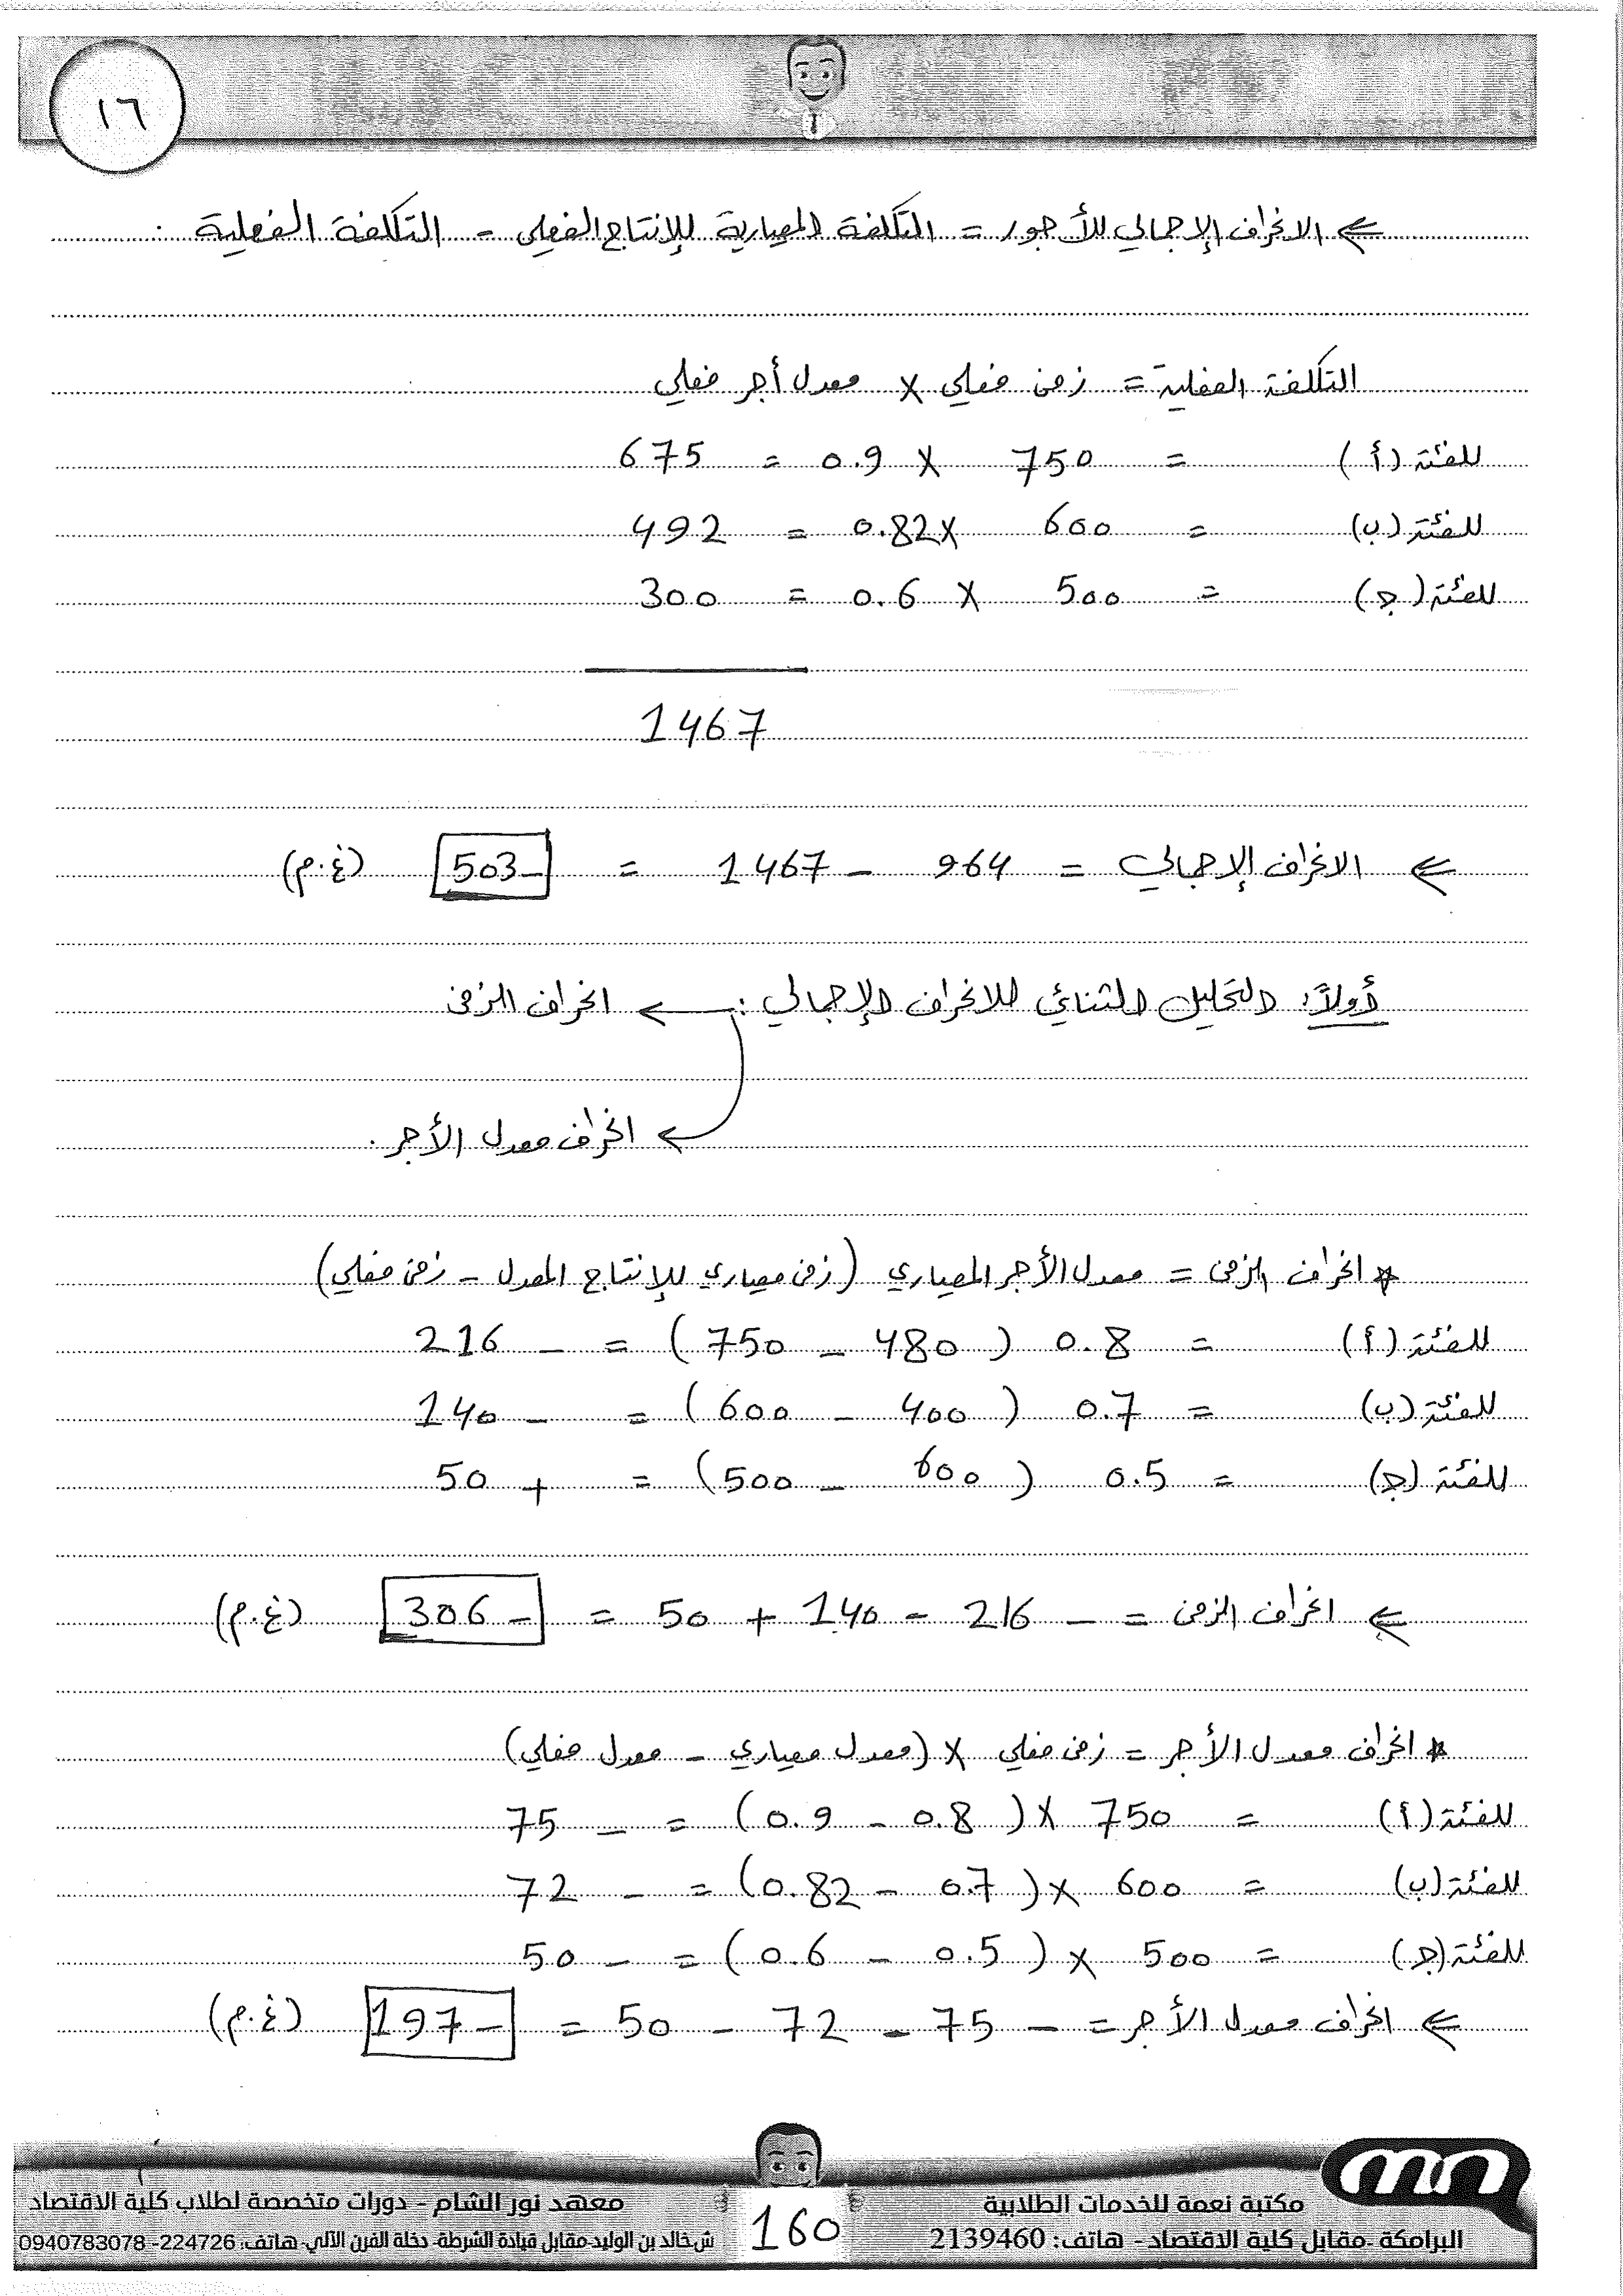 ١٦
الانحراف الإجمالي للأجور = التكلفة المعيارية للإنتاج الفعلي - التكلفة الفعلية .
التكلفة الفعلية = زمن فعلي × معدل أجر فعلي
للفئة (أ) = 750 × 0.9 = 675
للفئة (ب) = 600 × 0.82 = 492
للفئة (ج) = 500 × 0.6 = 300
1467
الانحراف الإجمالي = 964 - 1467 = -503 (غ.م)
أولاً: التحليل الثنائي للانحراف الإجمالي : ← انحراف الزمن
← انحراف معدل الأجر .
* انحراف الزمن = معدل الأجر المعياري (زمن معياري للإنتاج المعدل - زمن فعلي)
للفئة (أ) = 0.8 (480 - 750) = - 216
للفئة (ب) = 0.7 (400 - 600) = - 140
للفئة (ج) = 0.5 (600 - 500) = + 50
انحراف الزمن = - 216 - 140 + 50 = -306 (غ.م)
* انحراف معدل الأجر = زمن فعلي × (معدل معياري - معدل فعلي)
للفئة (أ) = 750 × (0.8 - 0.9) = - 75
للفئة (ب) = 600 × (0.7 - 0.82) = - 72
للفئة (ج) = 500 × (0.5 - 0.6) = - 50
انحراف معدل الأجر = - 75 - 72 - 50 = -197 (غ.م)
مكتبة نعمة للخدمات الطلابية
البرامكة -مقابل كلية الاقتصاد- هاتف: 2139460
160
معهد نور الشام - دورات متخصصة لطلاب كلية الاقتصاد
ش.خالد بن الوليد-مقابل قيادة الشرطة- دخلة الفرن الآلي- هاتف: 224726- 0940783078